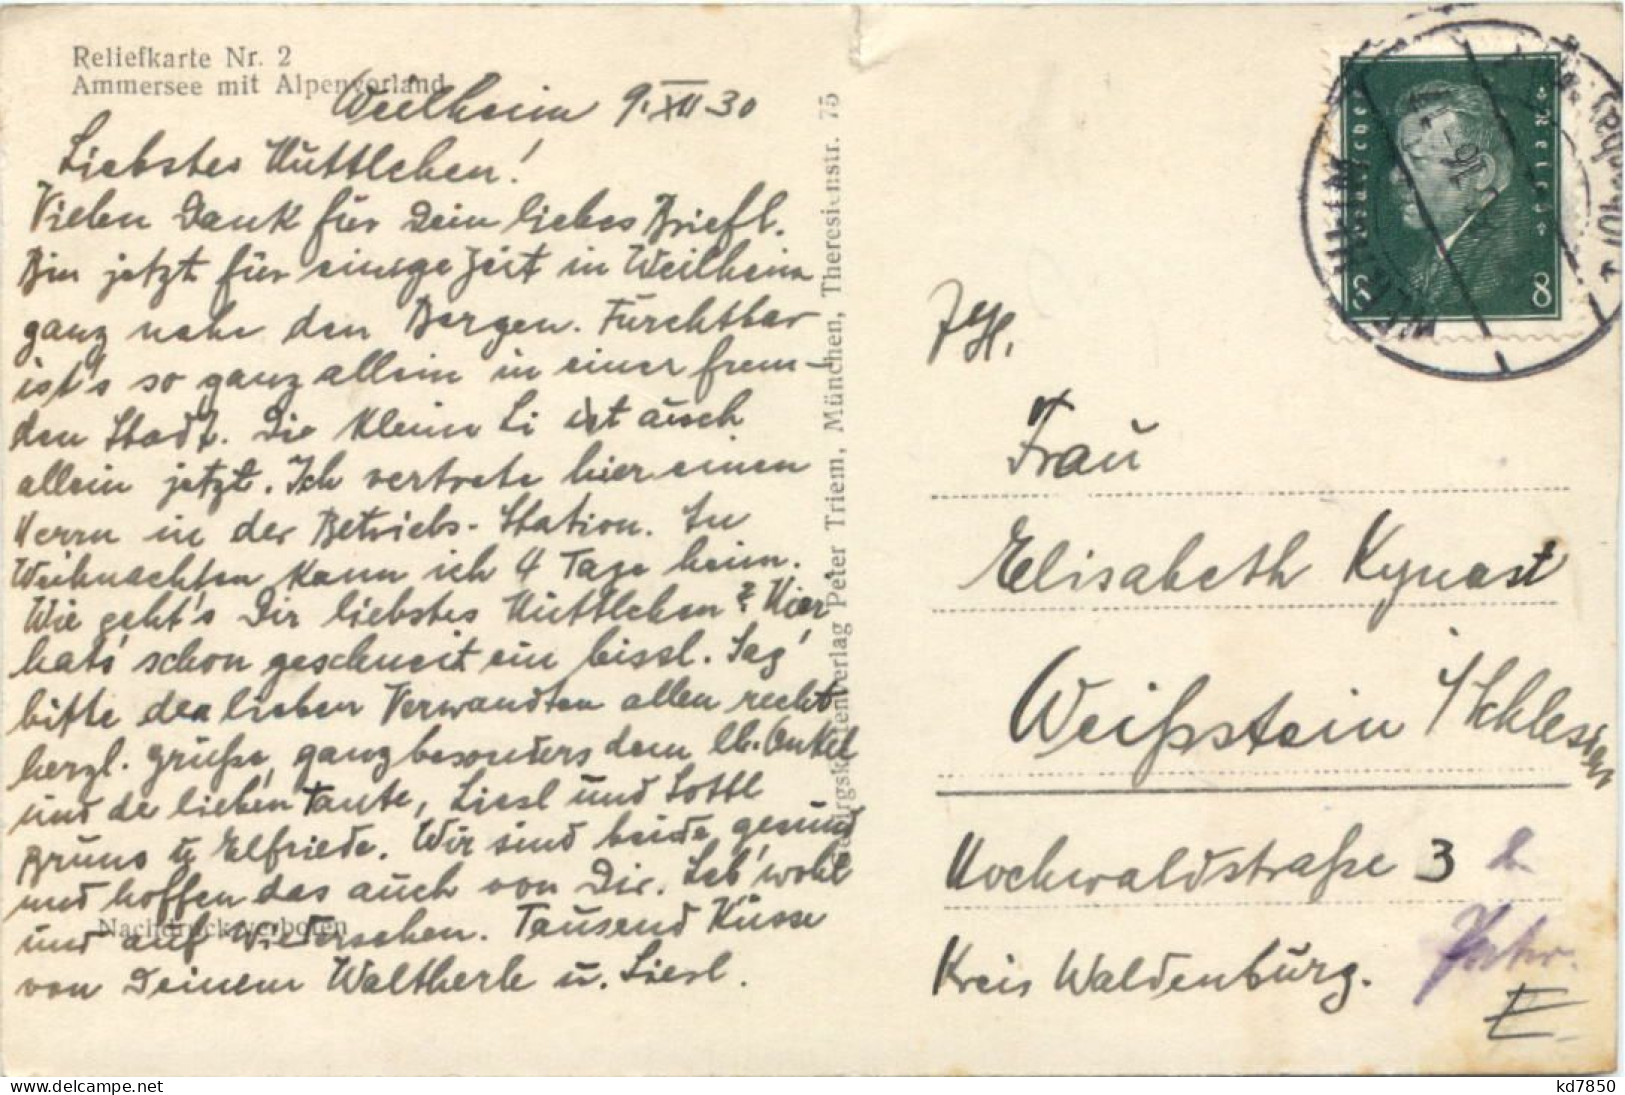 Reliefkarte Nr. 2
Ammersee mit Alpenvorland
Weilheim 9. XII 30
Liebstes Muttlchen!
Vielen Dank für Dein liebes Briefl.
Bin jetzt für einige Zeit in Weilheim
ganz nahe den Bergen. Furchtbar
ist's so ganz allein in einer frem-
den Stadt. Die kleine Li ist auch
allein jetzt. Ich vertrete hier einen
Herrn in der Betriebs-Station. Zu
Weihnachten kann ich 4 Tage heim.
Wie geht's Dir liebstes Muttlchen? Hier
hat's schon geschneit ein bissl. Sag'
bitte den lieben Verwandten allen recht
herzl. Grüße, ganz besonders dem lb. Onkel
und de lieben Tante, Liesl und Lottl
Bruno u Elfriede. Wir sind beide gesund
und hoffen das auch von Dir. Leb' wohl
und auf Wiedersehen. Tausend Küsse
von Deinem Waltherle u. Liesl.
Nachdruck verboten
Gebirgskartenverlag Peter Triem, München, Theresienstr. 75
Deutsches Reich
8 8
WEILHEIM
(Oberbay)
Frau
Elisabeth Kynast
Weißstein i/Schlesien
Hochwaldstraße 3
Kreis Waldenburg.
kd7850